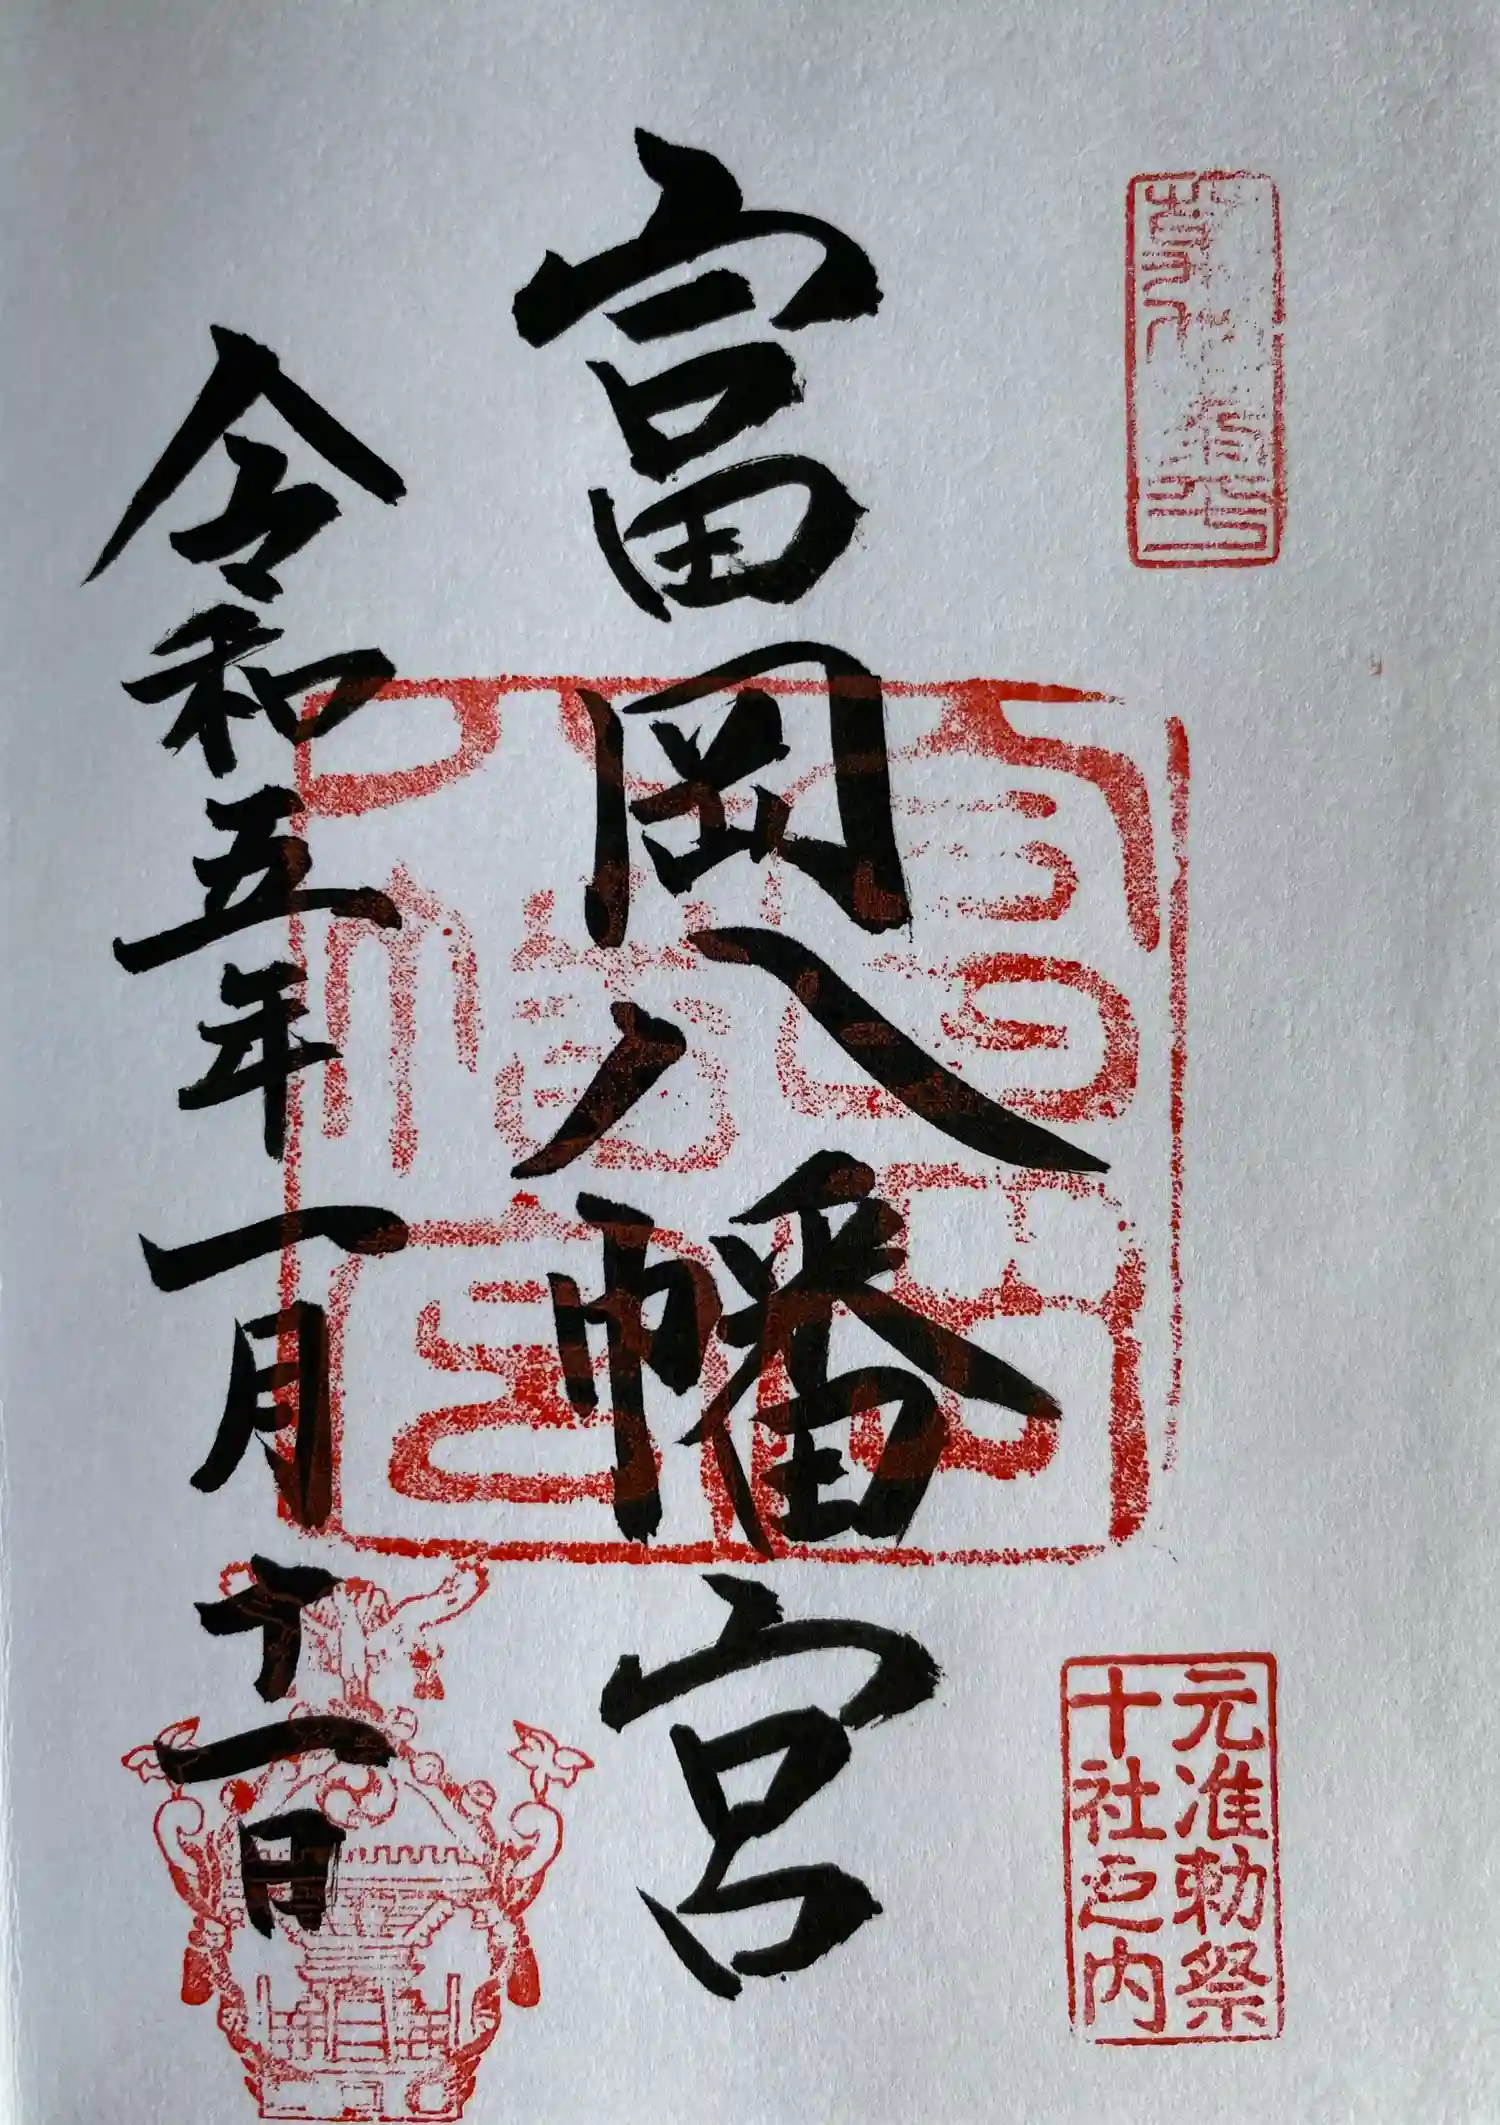 元准勅祭
十社之内
富岡八幡宮
富岡
八幡宮
令和五年一月十一日